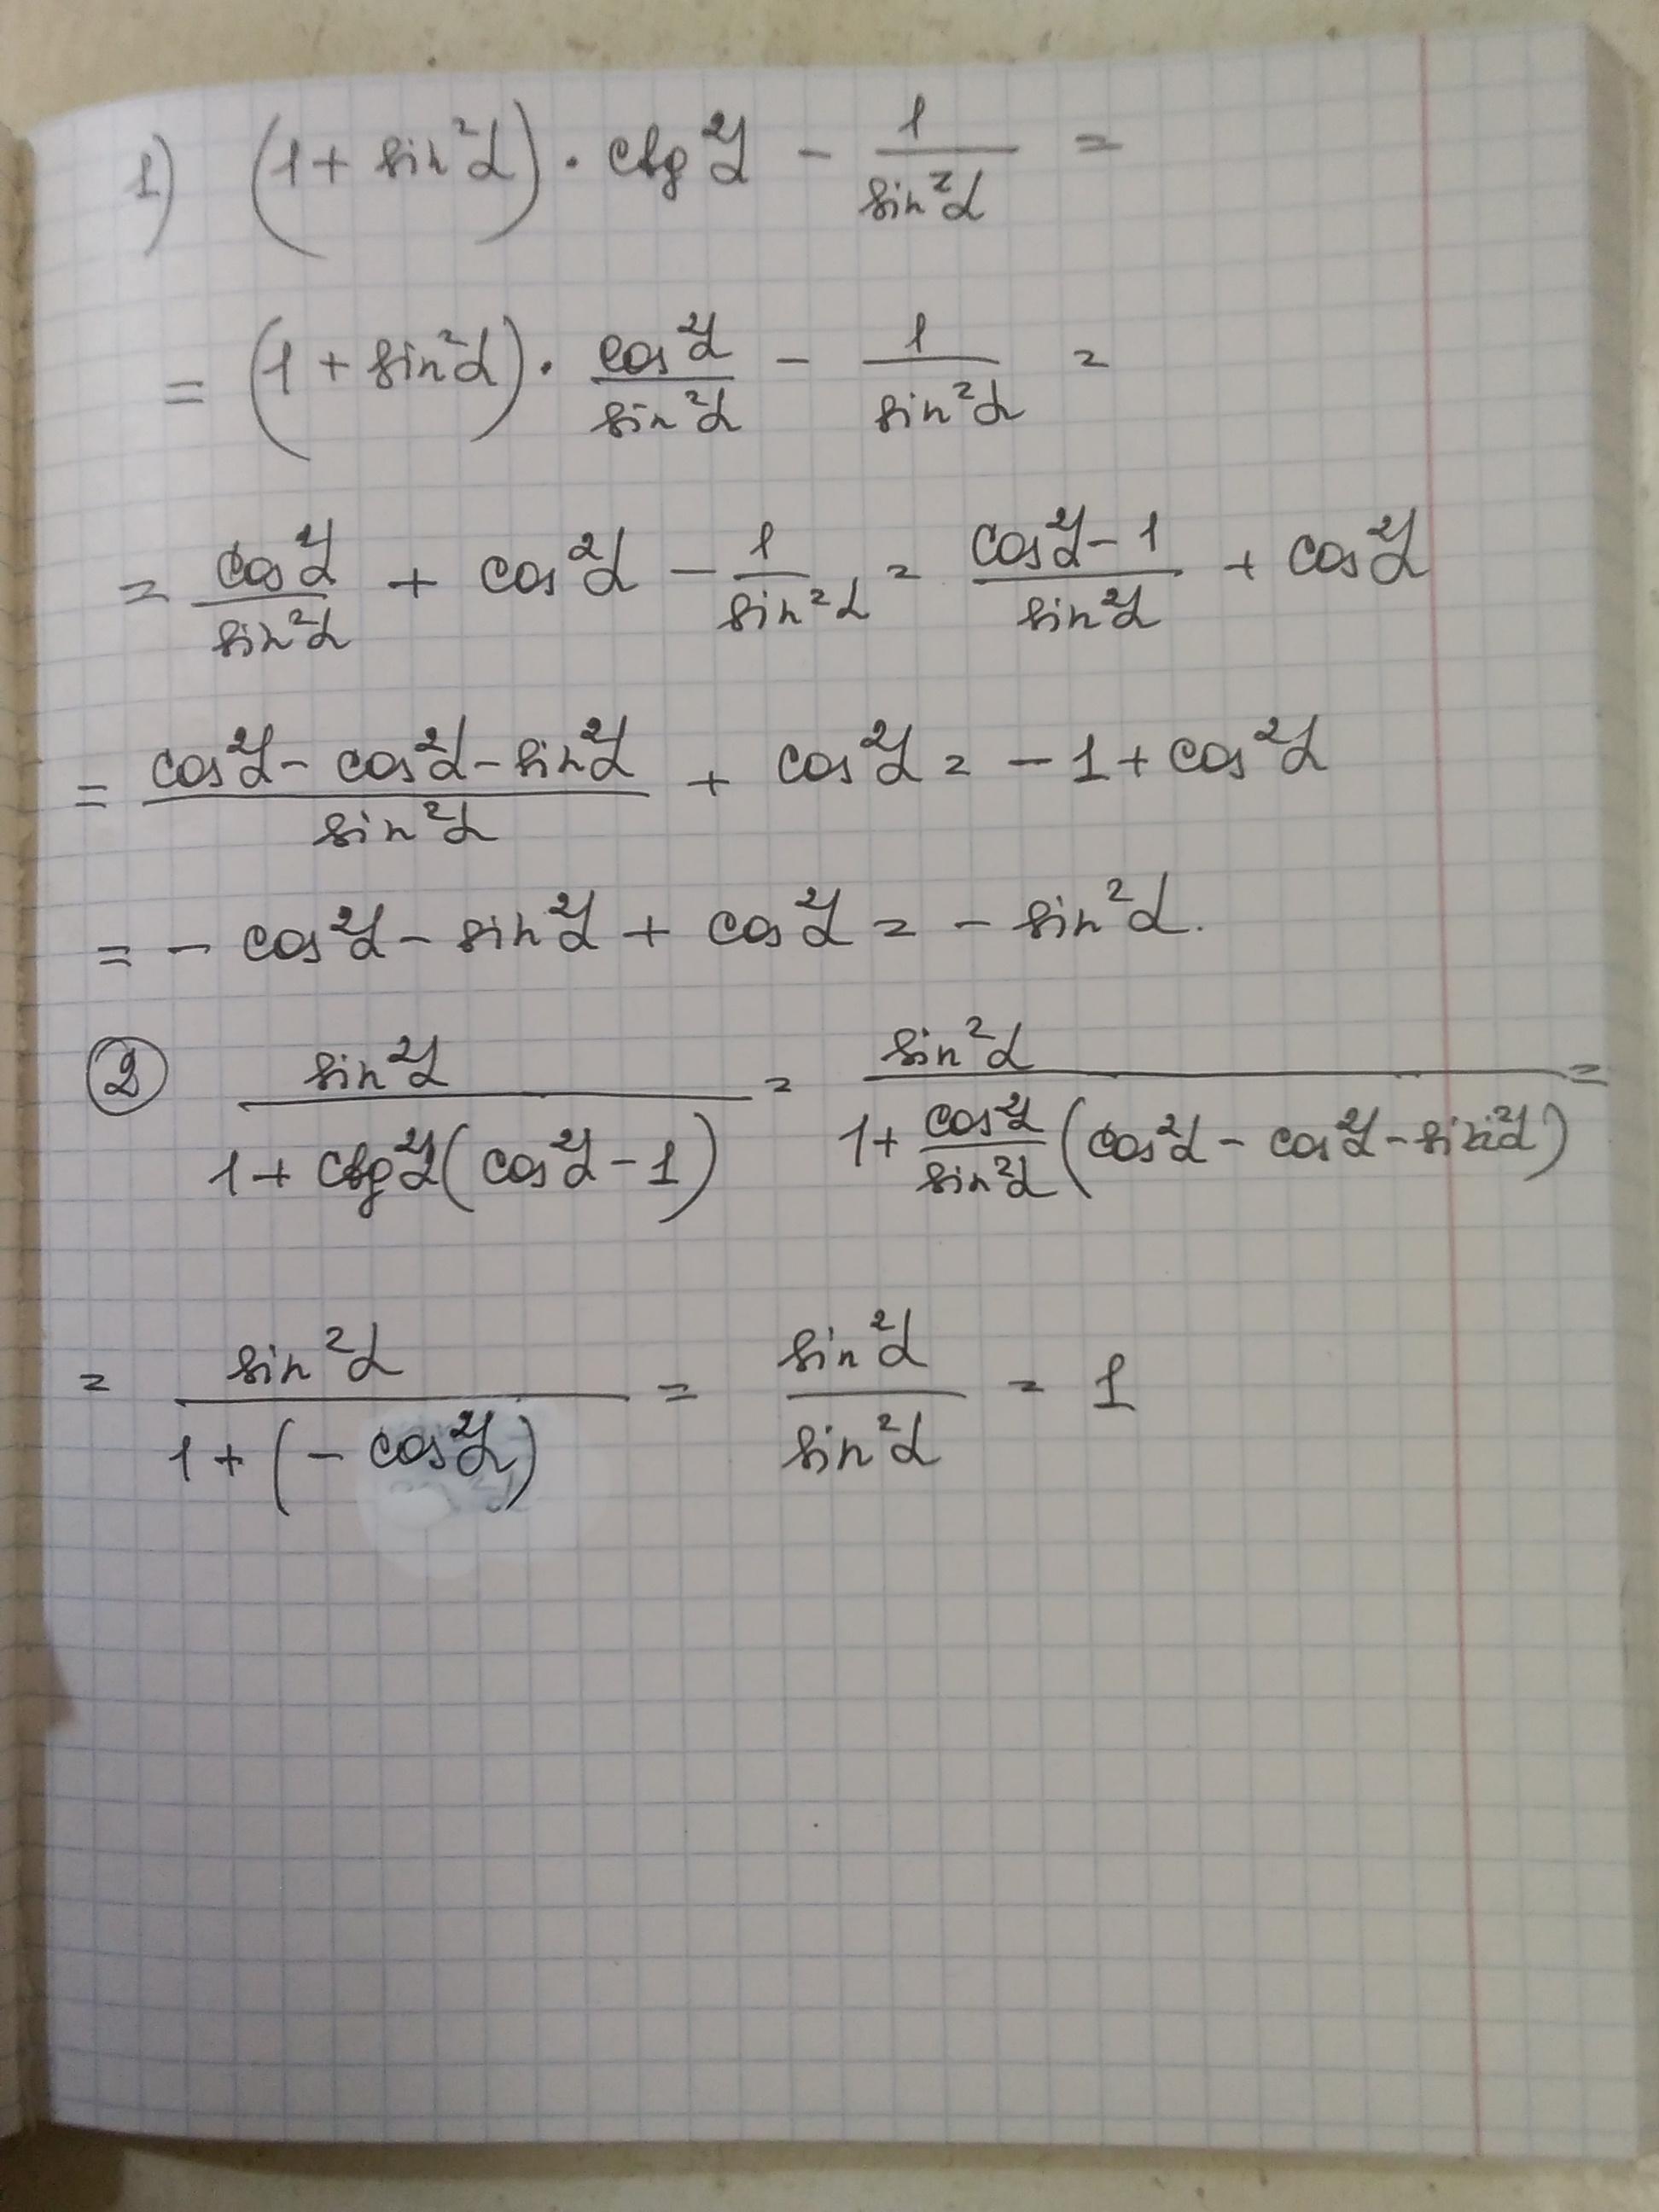 1) (1 + sin²α) · ctg²α − 1/sin²α =
= (1 + sin²α) · cos²α/sin²α − 1/sin²α =
= cos²α/sin²α + cos²α − 1/sin²α = (cos²α − 1)/sin²α + cos²α
= (cos²α − cos²α − sin²α)/sin²α + cos²α = −1 + cos²α
= − cos²α − sin²α + cos²α = − sin²α.
② sin²α/(1 + ctg²α(cos²α − 1)) = sin²α/(1 + cos²α/sin²α (cos²α − cos²α − sin²α)) =
= sin²α/(1 + (− cos²α)) = sin²α/sin²α = 1